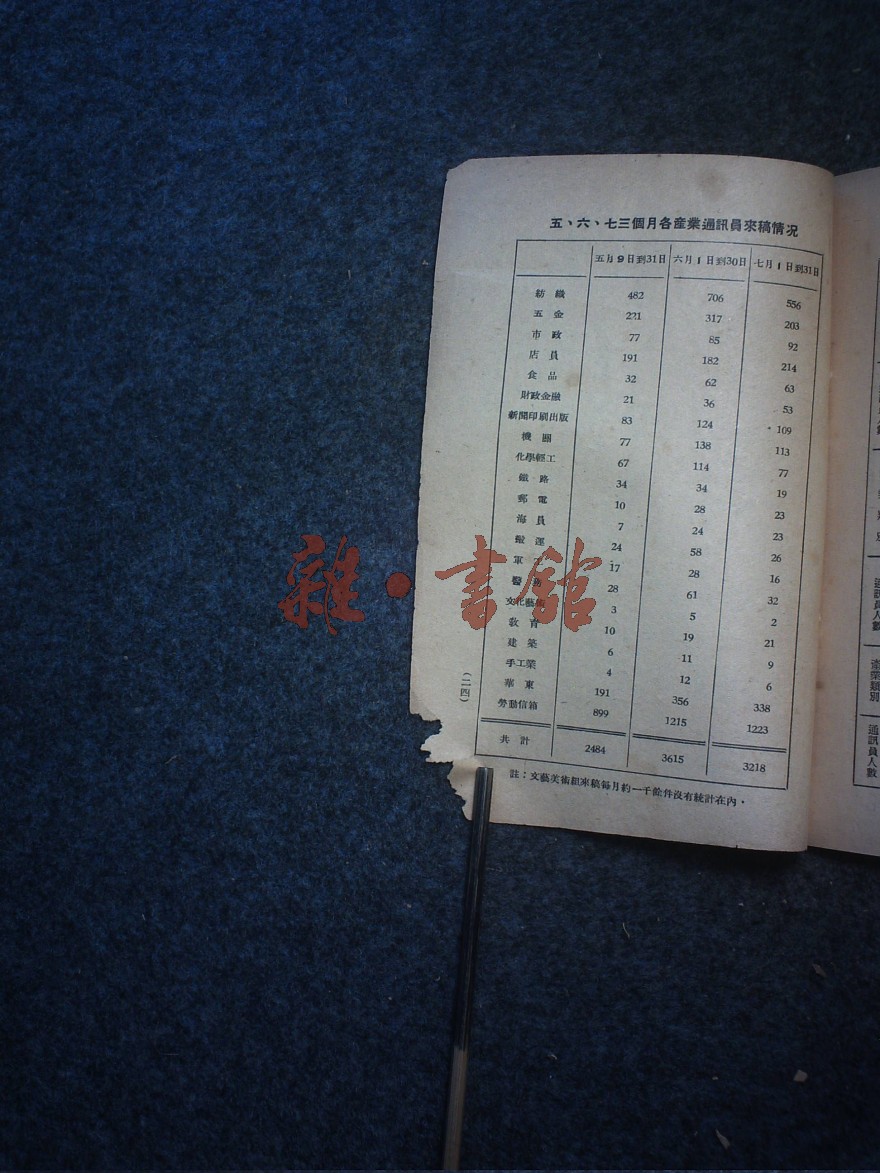 五、六、七三個月各產業通訊員來稿情况
五月9日到31日 六月1日到30日 七月1日到31日
紡織 482 706 556
五金 221 317 203
市政 77 85 92
店員 191 182 214
食品 32 62 63
財政金融 21 36 53
新聞印刷出版 83 124 109
機關 77 138 113
化學輕工 67 114 77
鐵路 34 34 19
郵電 10 28 23
海員 7 24 23
搬運 24 58 26
軍工 17 28 16
醫務 28 61 32
文化藝術 3 5 2
教育 10 19 21
建築 6 11 9
手工業 4 12 6
華東 191 356 338
勞動信箱 899 1215 1223
共計 2484 3615 3218
註：文藝美術組來稿每月約一千餘件沒有統計在內。
（二四）
雜·書館
通訊員人數
產業類別
通訊員人數